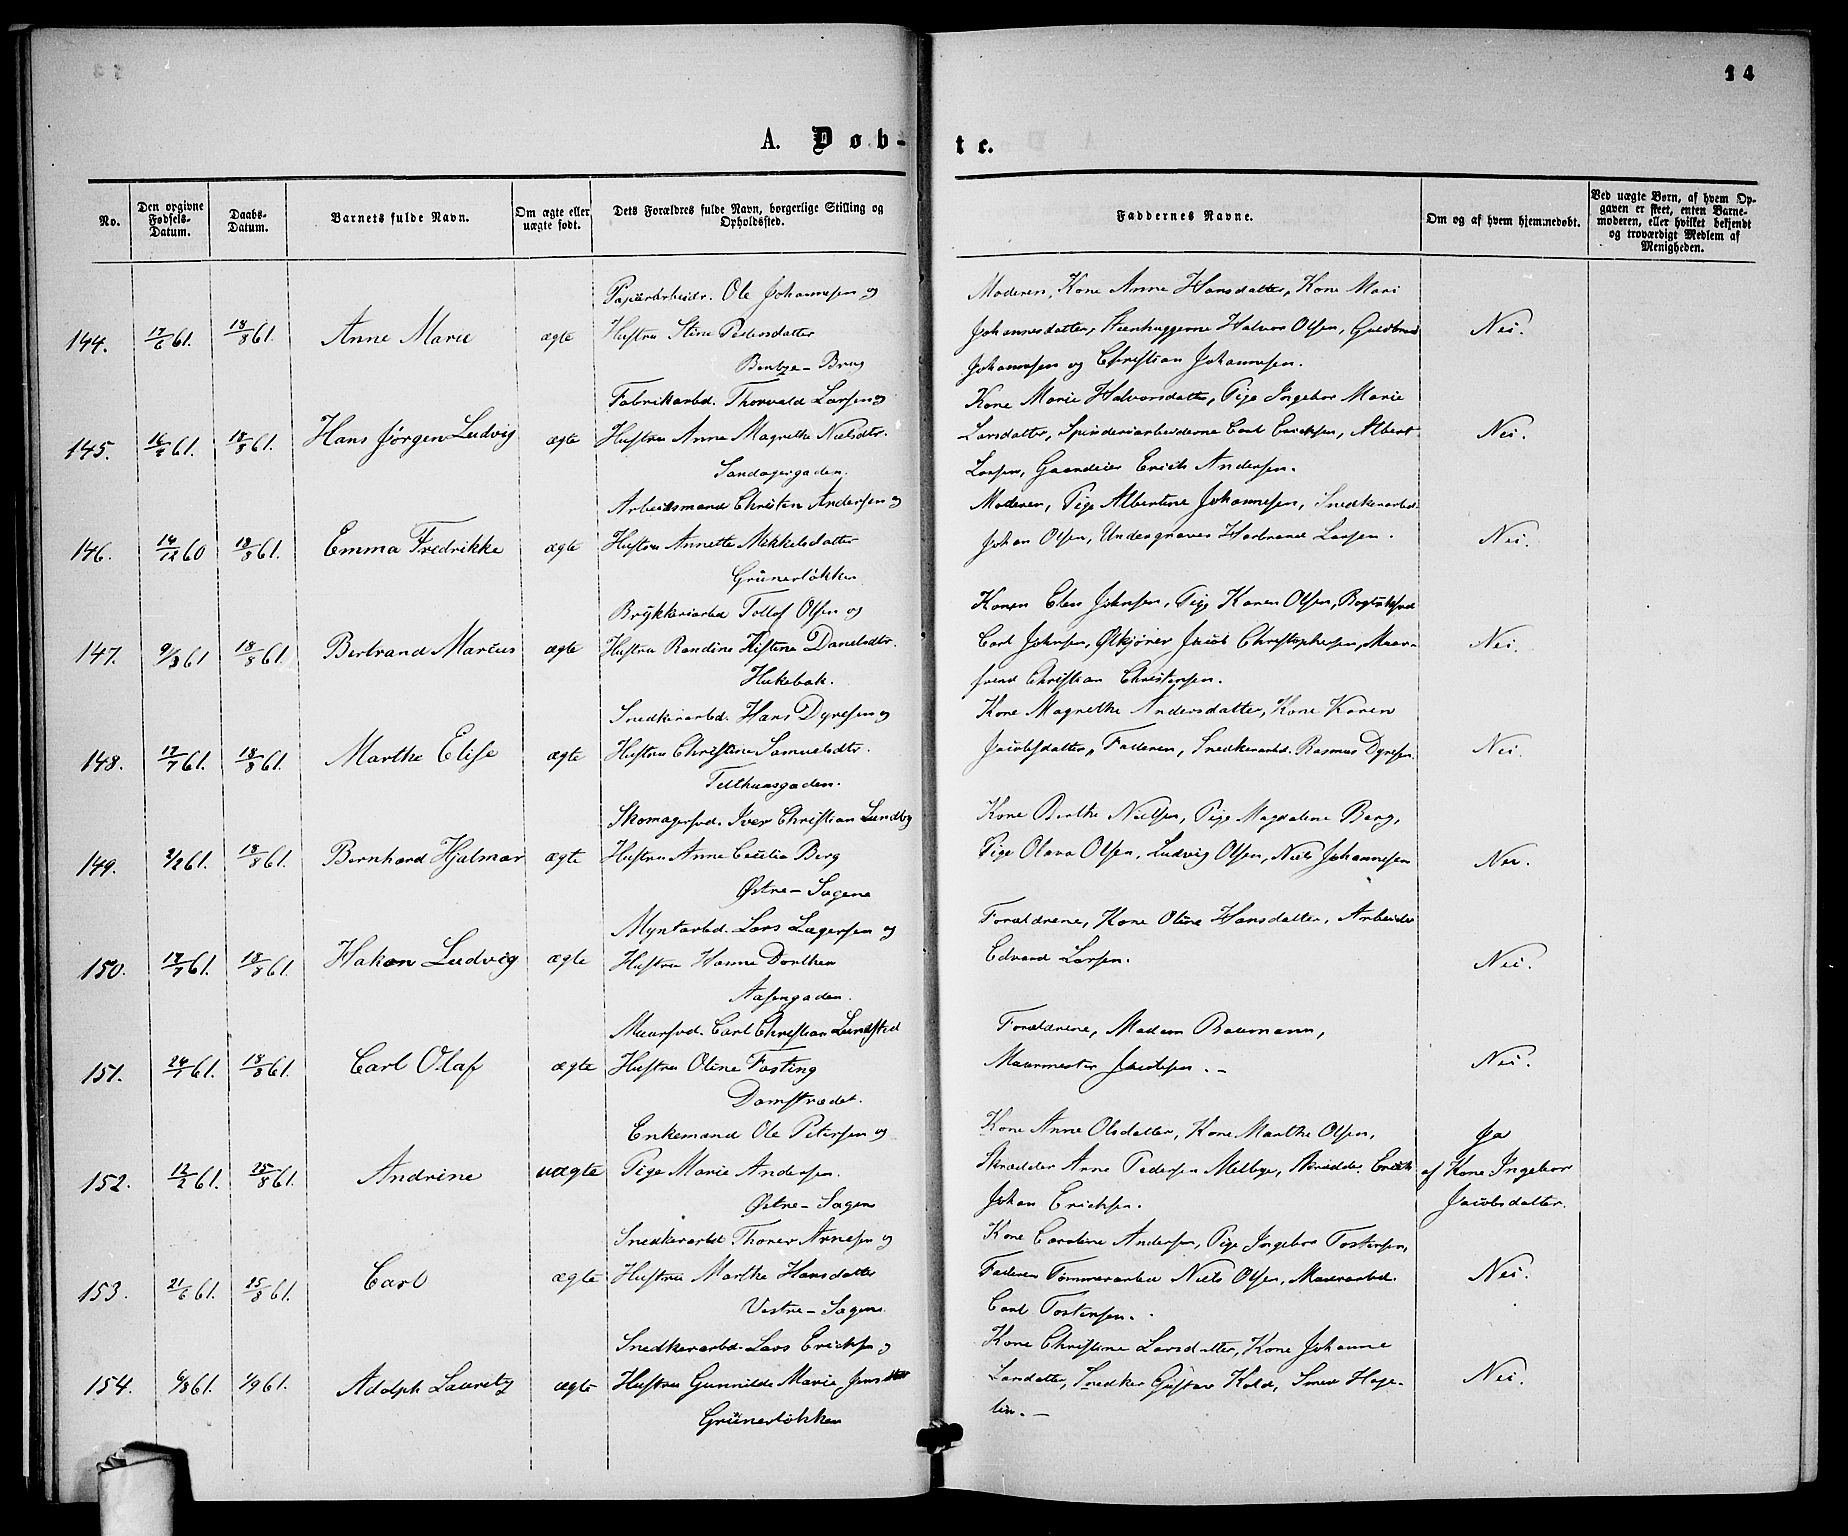 14
A. Døb-
te.
No.
Den opgivne Fødsels-Datum.
Daabs-Datum.
Barnets fulde Navn.
Om ægte eller uægte født.
Dets Forældres fulde Navn, borgerlige Stilling og Opholdssted.
Faddernes Navne.
Om og af hvem hjemmedøbt.
Ved uægte Børn, af hvem Opgaven er skeet, enten Barnemoderen, eller hvilket bekjendt og troværdigt Medlem af Menigheden.
Papierarbeidr. Ole Johannesen og
Moderen, Kone Anne Hansdatter, Kone Mari
144. 17/6 61. 18/8 61. Anne Marie ægte Hustru Stine Pedersdatter
Johannesdatter, Steenhuggerne Halvor Olsen, Gulbrand Nei.
Bentze-Brug
Johannesen og Christian Johannesen.
Fabrikarbd. Thorvald Larsen og
Kone Marie Halvorsdatter, Pige Ingebor Marie
145. 61. 18/8 61. Hans Jørgen Ludvig ægte Hustru Anne Magrethe Nielsdtr.
Larsdatter, Spinderiarbeiderne Carl Ericksen, Albert Nei.
Sandagergaden.
Larsen, Gaardeier Erich Andersen.
Arbeidsmand Christen Andersen og
Moderen, Pige Albertine Johannesen, Snedkerarbd.
146. 14/12 60 18/8 61. Emma Fredrikke ægte Hustru Annette Mikkelsdatter
Johan Olsen, Undergraver Harbrand Larsen. Nei.
Grünerløkken
Brykkeriarbd Tollof Olsen og
Konen Elen Johnsen, Pige Karen Olsen,
147. 9/3 61 18/8 61. Bertrand Marius ægte Hustru Randine Danelsdtr.
Carl Johnsen, Ølkjører Jacob Christophersen, Muur- Nei.
Hukebak.
svend Christian Christensen.
Snedkerarbd. Hans Dyresen og
Kone Magrethe Andersdatter, Kone Karen
148. 17/7 61. 18/8 61. Marthe Elise ægte Hustru Christine Samuelsdtr.
Jacobsdatter, Faderen, Snedkerarbd. Rasmus Dyresen. Nei
Telthuusgaden.
Skomagersvd. Iver Christian Lundby
Kone Berthe Nielsen, Pige Magdalene Berg,
149. 2/2 61. 18/8 61. Bernhard Hjalmar ægte Hustru Anne Cecilia Berg
Pige Olava Olsen, Ludvig Olsen, Niels Johannesen Nei.
Østre-Sagene
Myntarbd. Lars Lagersen og
Forældrene, Kone Oline Hansdatter, Arbeider
150. 17/7 61. 18/8 61 Hakon Ludvig ægte Hustru Hanne Dorthea
Edvard Larsen. Nei.
Aasengaden.
Muursvd. Carl Christian Lundsted
Forældrene, Madam Baumann,
151. 24/7 61. 18/8 61. Carl Olaf ægte Hustru Oline Fasting
Muurmester Jacobsen. - Nei.
Damstrædet.
Enkemand Ole Petersen og
Kone Anne Olsdatter, Kone Marthe Olsen, Ja
152. 12/2 61. 25/8 61. Andrine uægte Pige Marie Andersen.
Skrædder Arne Pedersen Melbye, Skrædder Erick af Kone Ingebor
Østre-Sagene
Johan Ericksen. Jacobsdatter.
Snedkerarbd Thorer Arnesen og
Kone Caroline Andersen, Pige Ingebor Tostensen,
153. 21/6 61. 25/8 61. Carl ægte Hustru Marthe Hansdatter
Faderen Tømmerarbd Niels Olsen, Muurarbd. Nei.
Vestre-Sagene
Carl Tostensen.
Snedkerarbd. Lars Ericksen og
Kone Christine Larsdatter, Kone Johanne
154. 6/8 61. 1/9 61. Adolph Lauretz ægte Hustru Gunnilde Marie Jensdtr
Larsdatter, Snedker Gustav Kold, Smed Hage- Nei.
Grünerløkken
lin. -